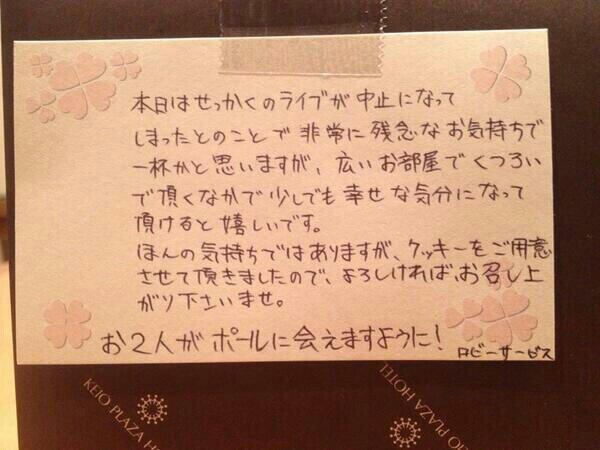 本日はせっかくのライブが中止になって
しまったとのことで非常に残念なお気持ちで
一杯かと思いますが、広いお部屋でくつろい
で頂くなかで少しでも幸せな気分になって
頂けると嬉しいです。
ほんの気持ちではありますが、クッキーをご用意
させて頂きましたので、よろしければ、お召し上
がり下さいませ。
お2人がポールに会えますように!
ロビーサービス
KEIO PLAZA H
EIO PLAZA HOTEL